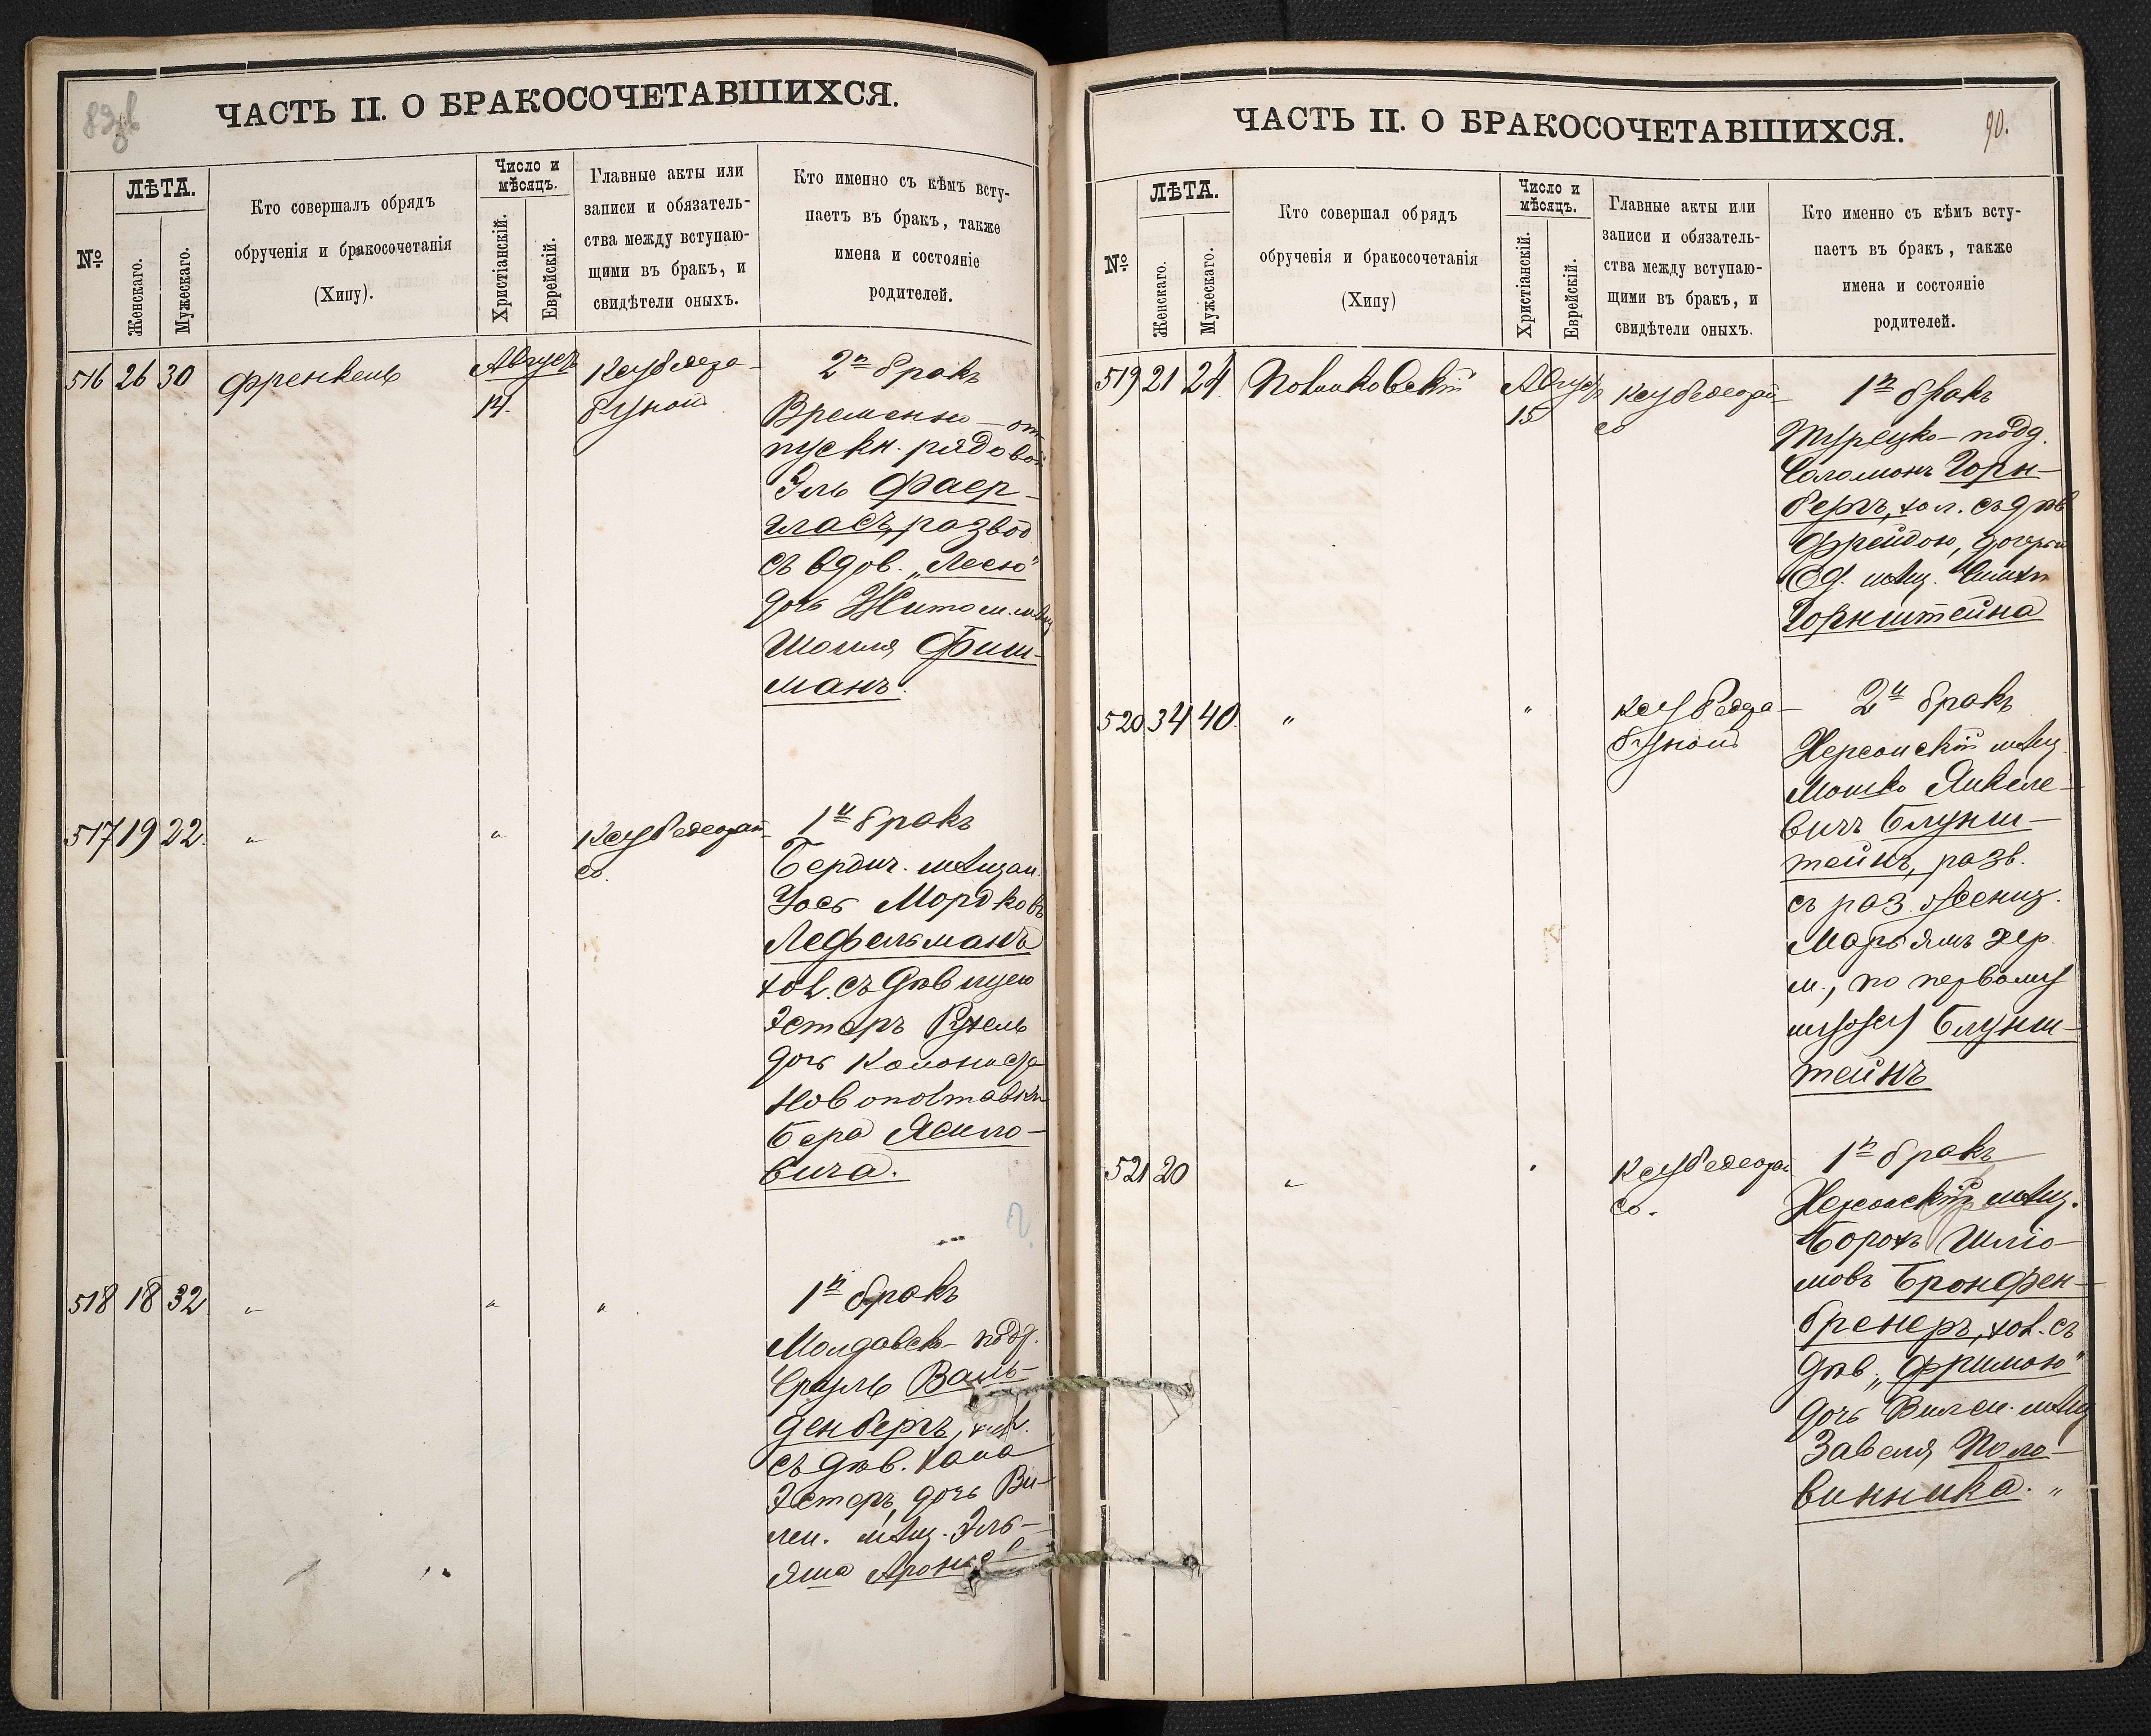 ЧАСТЬ II. О БРАКОСОЧЕТАВШИХСЯ.
№
ЛѢТА.
Женскаго.
Мужескаго.
Кто совершалъ обрядъ
обрученія и бракосочетанія
(Хипу).
Число и
мѣсяцъ.
Христіанскій.
Еврейскій.
Главные акты или
записи и обязатель-
ства между вступаю-
щими въ бракъ, и
свидѣтели оныхъ.
Кто именно съ кѣмъ всту-
паетъ въ бракъ, также
имена и состояніе
родителей.
516 26 30 Френкель
Августъ
14.
2й бракъ
Временно-от-
пускн. рядовой
Эль Фаер-
гласъ, развод
съ вдов. „Лесею"
дочь Житом. мѣщ
Шоиля Фиш-
манъ.
517 19 22. " "
1й бракъ
Бердич. мѣщан.
Іось Мордковъ
Лефельманъ
хол. съ дѣвицею
Эстеръ Рухель
дочь Колониста
Новополтавки
Бера Ясило-
вича.
518 18 32 " " "
1й бракъ
Молдавск- подд.
Сруль Валь-
денбергъ, хол.
съ дѣв. Хана
Эстеръ, дочь Ви-
лен. мѣщ. Эль-
яша
ЧАСТЬ II. О БРАКОСОЧЕТАВШИХСЯ.
90.
№
ЛѢТА.
Женскаго.
Мужескаго.
Кто совершал обрядъ
обрученія и бракосочетанія
(Хипу)
Число и
мѣсяцъ.
Христіанскій.
Еврейскій.
Главные акты или
записи и обязатель-
ства между вступаю-
щими въ бракъ, и
свидѣтели оныхъ.
Кто именно съ кѣмъ всту-
паетъ въ бракъ, также
имена и состояніе
родителей.
519 21 24.
Август
15
1й бракъ
Турецко-подд.
Соломонъ Горн-
бергъ, хол. съ дѣв
Фрейдою, дочерью
Од. мѣщ. Симхи
Горнштейна
520 34 40. " "
2й бракъ
Херсонскій мѣщ.
Мошко Янкеле-
вичъ Блунш-
тейнъ, разв.
съ раз. женщ.
Марьямъ хер.
м., по первому
мужу Блунш-
тейнъ
521 20 " "
1й бракъ
Херсонскій мѣщ.
Борохъ Шліо-
мовъ Бронфен-
бренеръ, хол. съ
дѣв „Фримою"
дочь Вилен. мѣщ
Завеля Поло-
винника. "